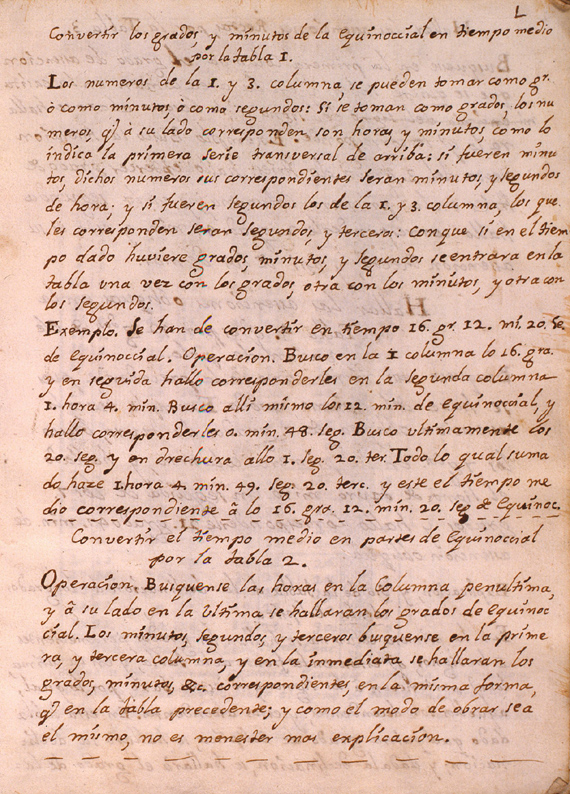 1
Convertir los grados, y minutos de la Equinoccial en tiempo medio
por la tabla 1.
Los numeros de la 1. y 3. columna, se pueden tomar como gr.
ò como minutos, ò como segundos: Si se toman como grados, los nu
meros, q̃ à su lado corresponden, son horas, y minutos, como lo
indica la primera serie transversal de arriba: si fueren minu
tos, dichos numeros sus correspondientes seran minutos, y segundos
de hora; y si fueren segundos los de la 1. y 3. columna, los que
les corresponden seran segundos, y terceros: Con que si en el tiem
po dado huviere grados, minutos, y segundos se entrara en la
tabla una vez con los grados, otra con los minutos, y otra con
los segundos.
Exemplo. Se han de convertir en tiempo 16. gr. 12. mi. 20. Se.
de Equinoccial. Operacion. Busco en la 1 columna lo 16. gra.
y en seguida hallo corresponderles en la segunda columna
1. hora 4. min. Busco alli mismo los 12. min. de Equinoccial, y
hallo corresponderles 0. min. 48. seg. Busco ultimamente los
20. seg. y en drechura allo 1. seg. 20. ter. Todo lo qual suma
do haze 1 hora 4. min. 49. seg. 20. terc. y este el tiempo me
dio correspondiente â lo 16. gra. 12. min. 20. seg de Equinoc.
Convertir el tiempo medio en partes de Equinoccial
por la tabla 2.
Operacion. Busquense las horas en la Columna penultima,
y â su lado en la Ultima se hallaran los grados de Equinoc
cial. Los minutos, segundos, y terceros busquense en la prime
ra, y tercera columna, y en la inmediata se hallaran los
grados, minutos, &c. correspondientes, en la misma forma,
q̃ en la tabla precedente; y como el modo de obrar sea
el mismo, no es menester mas explicacion.